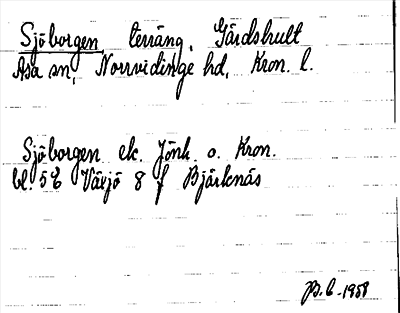 Sjöborgen, terräng, Gårdshult
Asa sn, Norrvidinge hd, Kron. l.
Sjöborgen ek. Jönk. o. Kron.
bl. 5E Växjö 8 f Bjärknäs
B.C. 1958